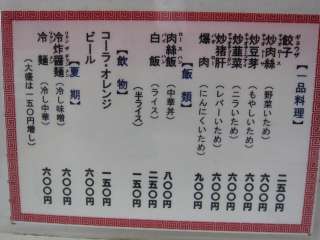 【一品料理】
餃子 ギョウザ 二五〇円
炒肉絲 (野菜いため) 六〇〇円
炒豆芽 (もやしいため) 六〇〇円
炒韮菜 (ニラいため) 六〇〇円
炒猪肝 (レバーいため) 六〇〇円
爆肉 (にんにくいため) 九〇〇円
【飯類】
肉絲飯 (中華丼) 八〇〇円
白飯 (ライス) 二五〇円
(半ライス) 一五〇円
【飲物】
コーラ・オレンジ 一五〇円
ビール 六〇〇円
【夏期】
冷炸醤麺 (冷し味噌) 六〇〇円
冷麺 (冷し中華) 六〇〇円
(大盛は一五〇円増し)